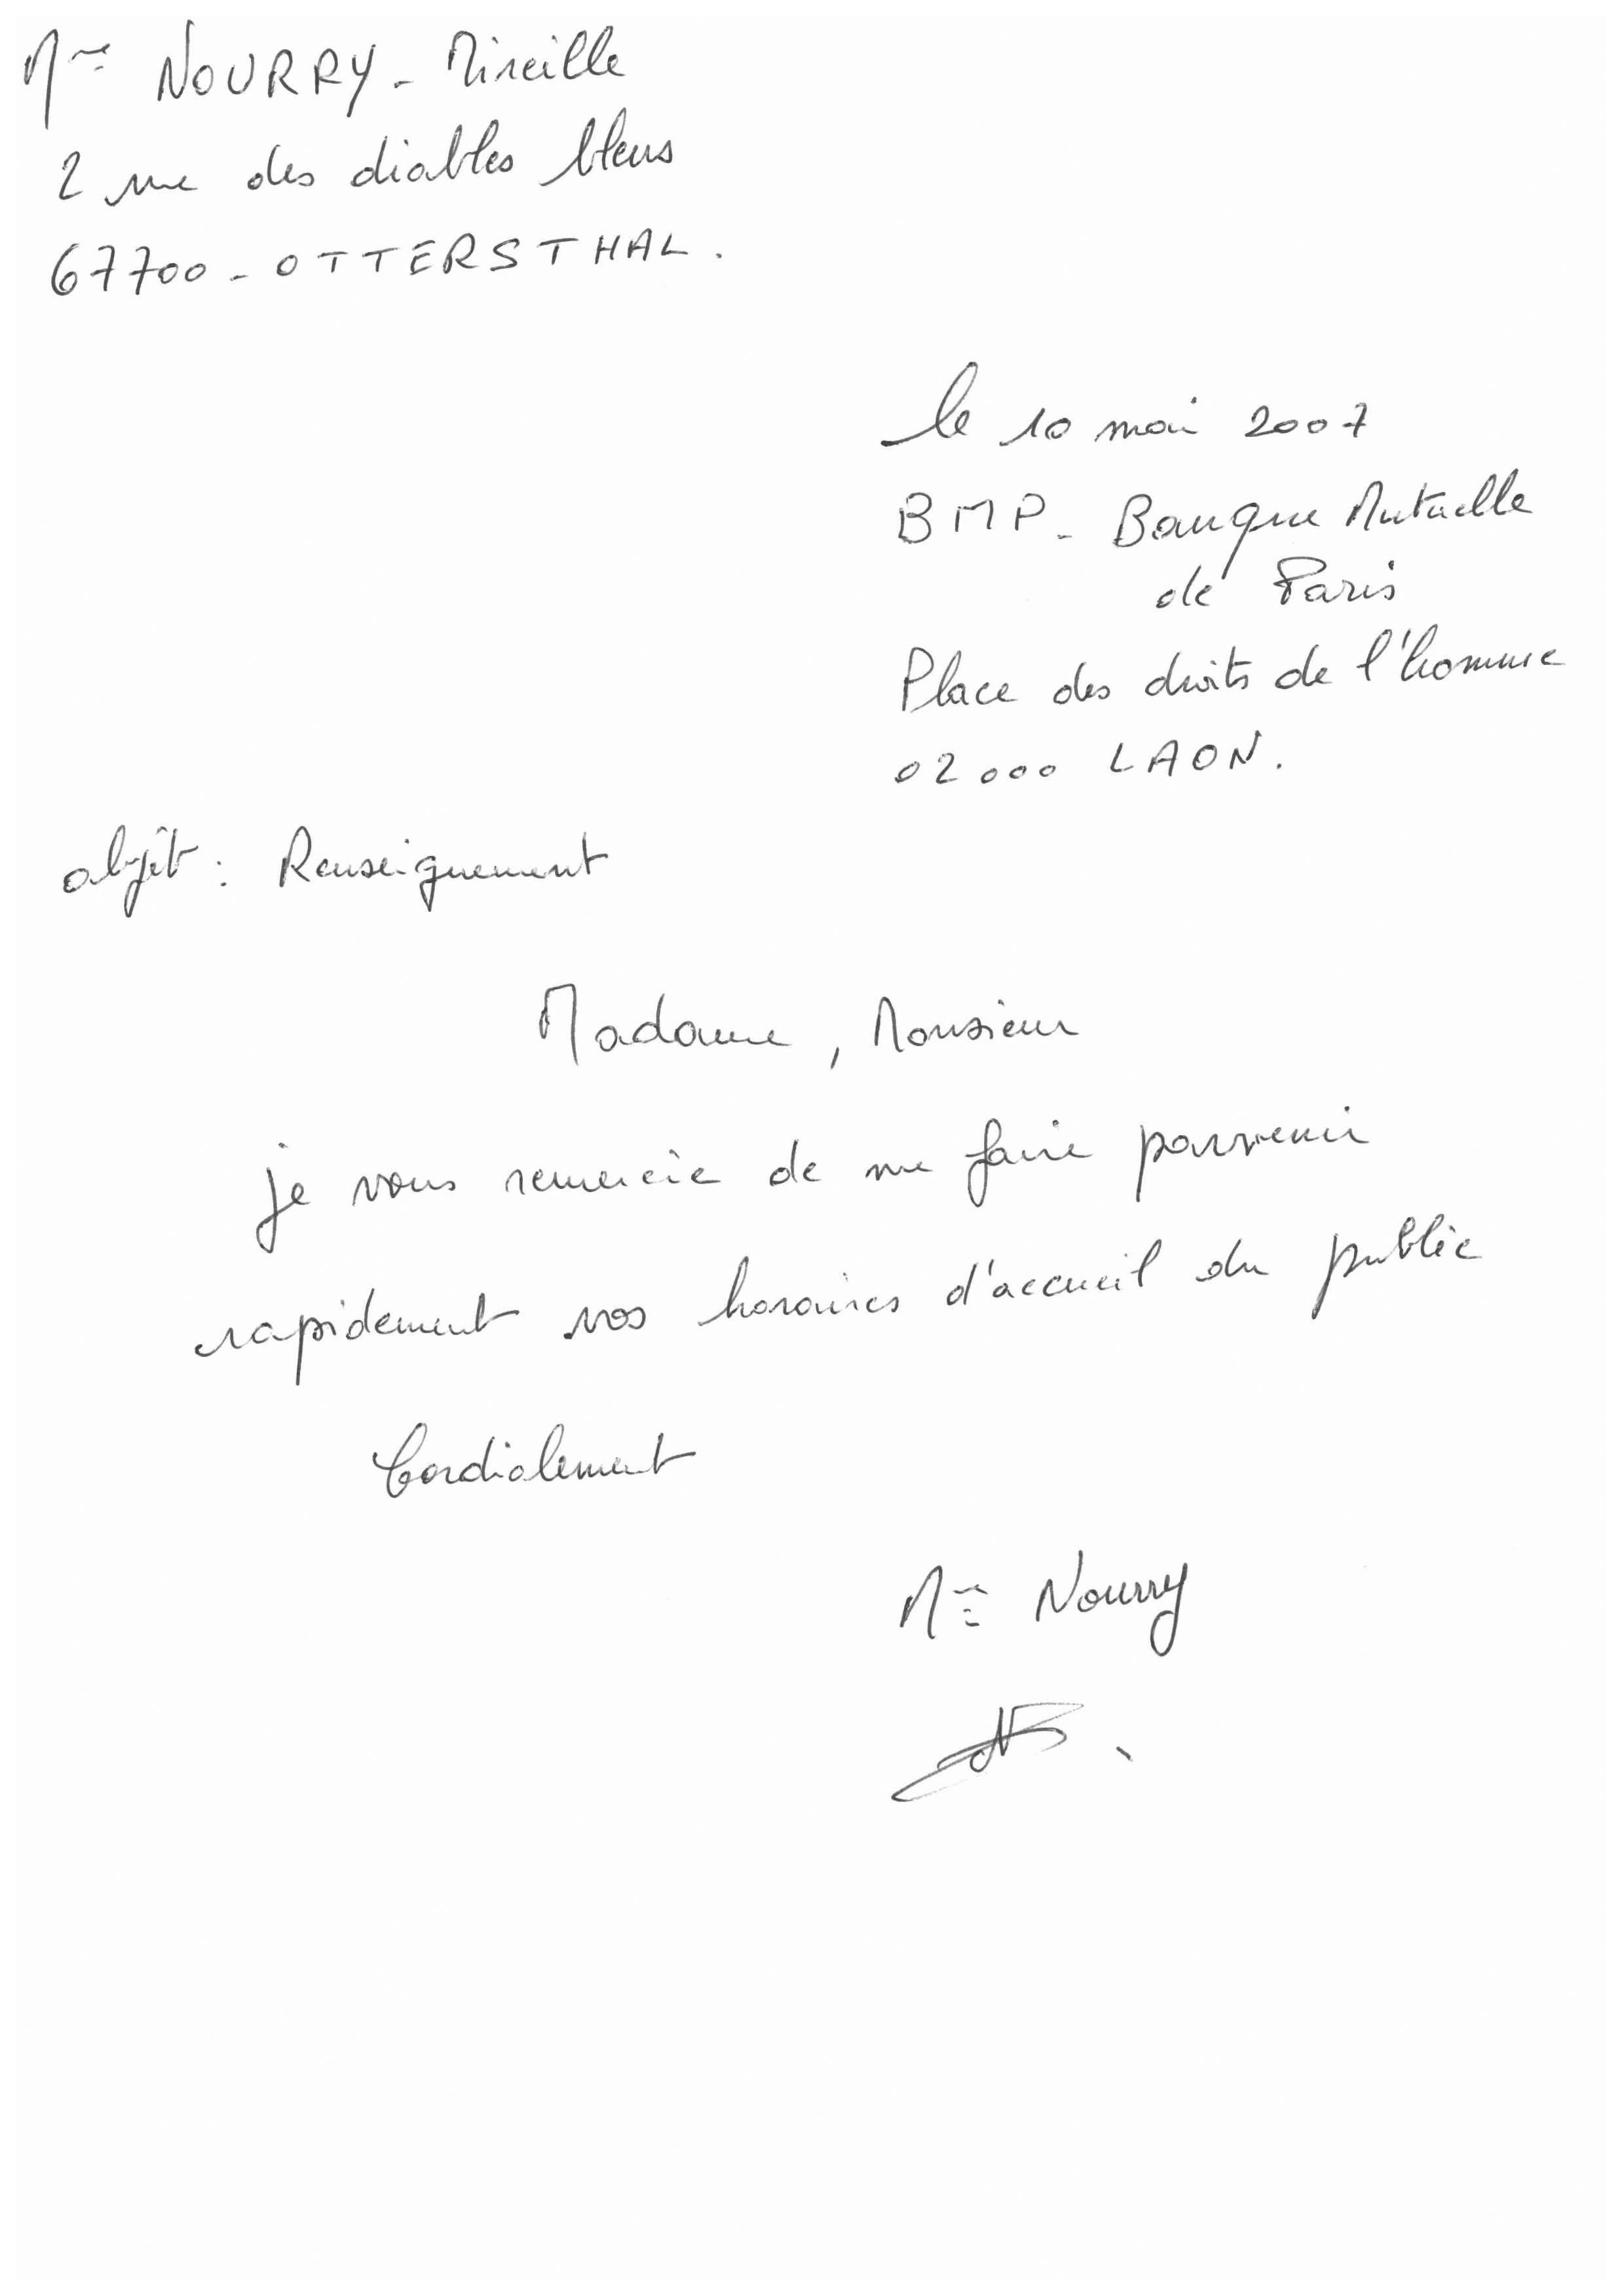 Mme NOURRY - Mireille
2 rue des diables bleus
67700 - OTTERSTHAL.
le 10 mai 2007
BMP - Banque Mutuelle
de Paris
Place des droits de l'homme
02000 LAON.
objet : Renseignement
Madame, Monsieur
je vous remercie de me faire parvenir
rapidement vos horaires d'accueil du public
Cordialement
Mme Nourry